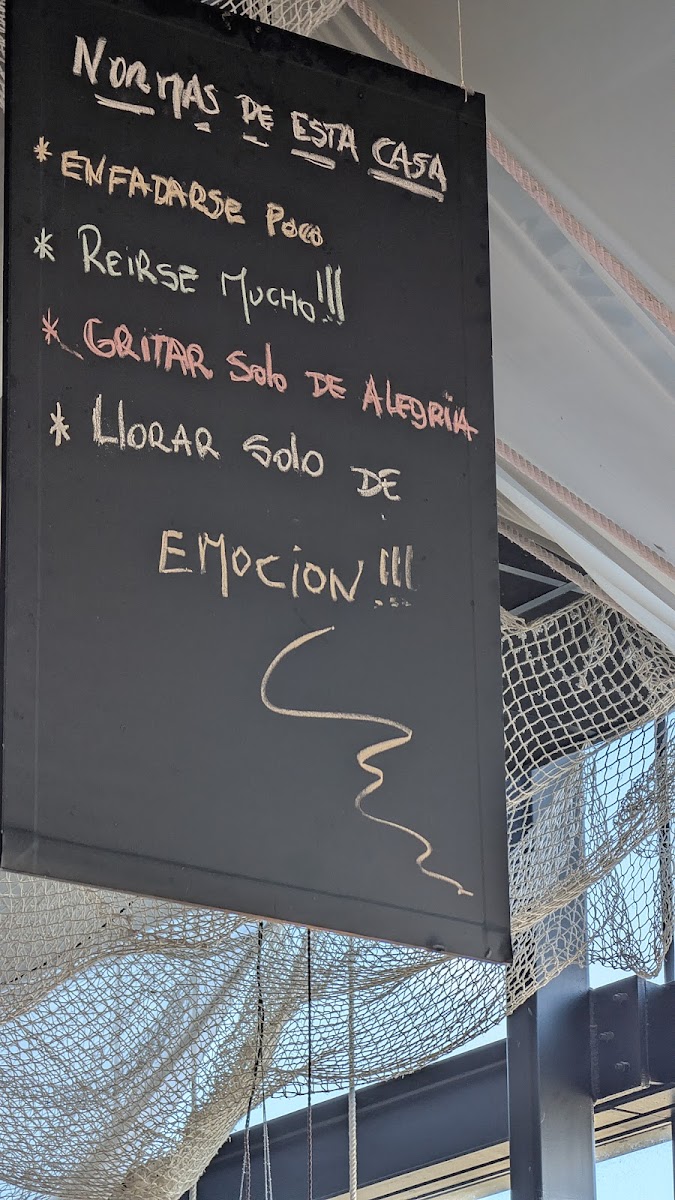 NORMAS DE ESTA CASA
* ENFADARSE POCO
* REIRSE MUCHO!!!
* GRITAR SOLO DE ALEGRÍA
* LLORAR SOLO DE
EMOCION!!!